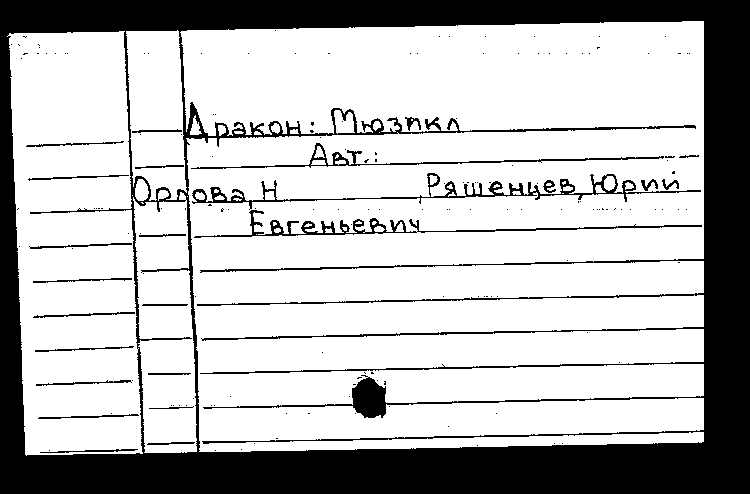 Дракон: Мюзикл
Авт.:
Орлова, Н , Ряшенцев, Юрий
Евгеньевич